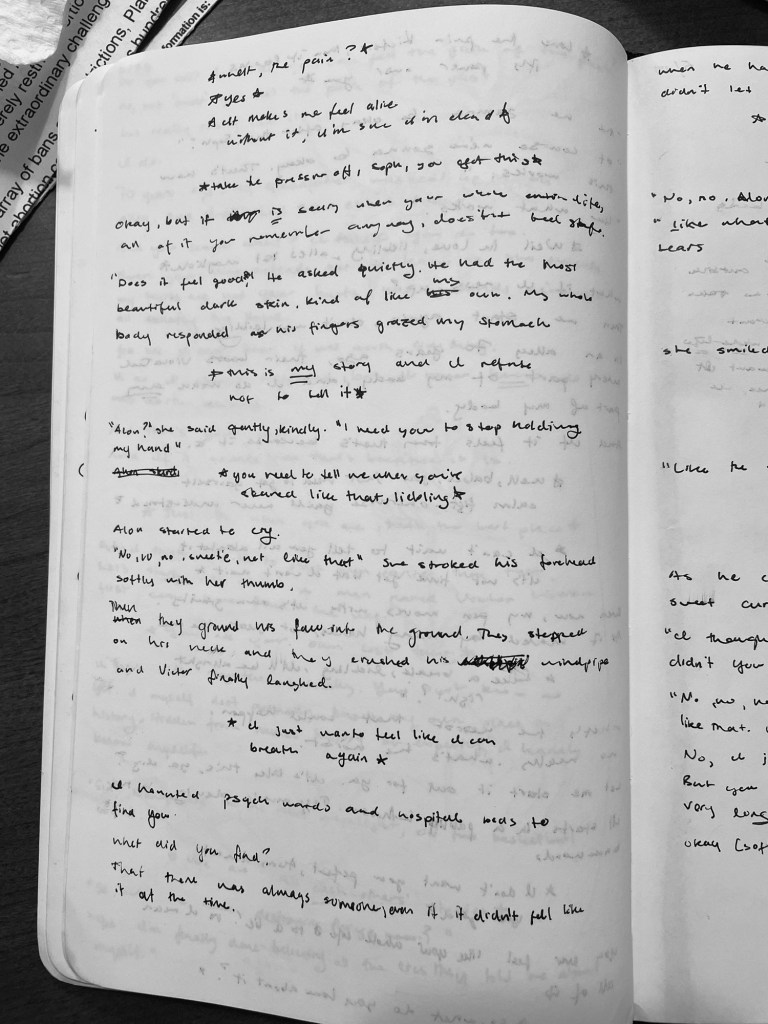 rtions, Plan
ormation is:
erely restri
he extraordinary challeng
array of bans
ot abortion
the pain? *
* yes *
* It makes me feel alive
without it, I'm sure I'm dead *
* take the pressure off, soph, you get this *
Okay, but it is scary when your whole entire life,
all of it you remember anyway, doesn't feel safe.
"Does it feel good?" He asked quietly. He had the most
beautiful dark skin, kind of like my own. My whole
body responded as his fingers grazed my stomach
* this is my story and I refuse
not to tell it *
"Alon?" she said gently, kindly. "I need you to stop holding
my hand"
* you need to tell me when you're
scared like that, liebling *
Alon started to cry.
"No, no, no, sweetie, not like that" She stroked his forehead
softly with her thumb.
Then they ground his face into the ground. They stepped
on his neck and they crushed his windpipe
and Victor finally laughed.
* I just want to feel like I can
breath again *
I haunted psych wards and hospital beds to
find you.
What did you find?
That there was always someone, even if it didn't fell like
it at the time.
when he ha
didn't let
*
"No, no. Alon
"Like what
tears
she smiled
"Like the
As he c
sweet cur
"I though
didn't you
"No, no, n
like that.
No, I j
But you
very long
okay (sof